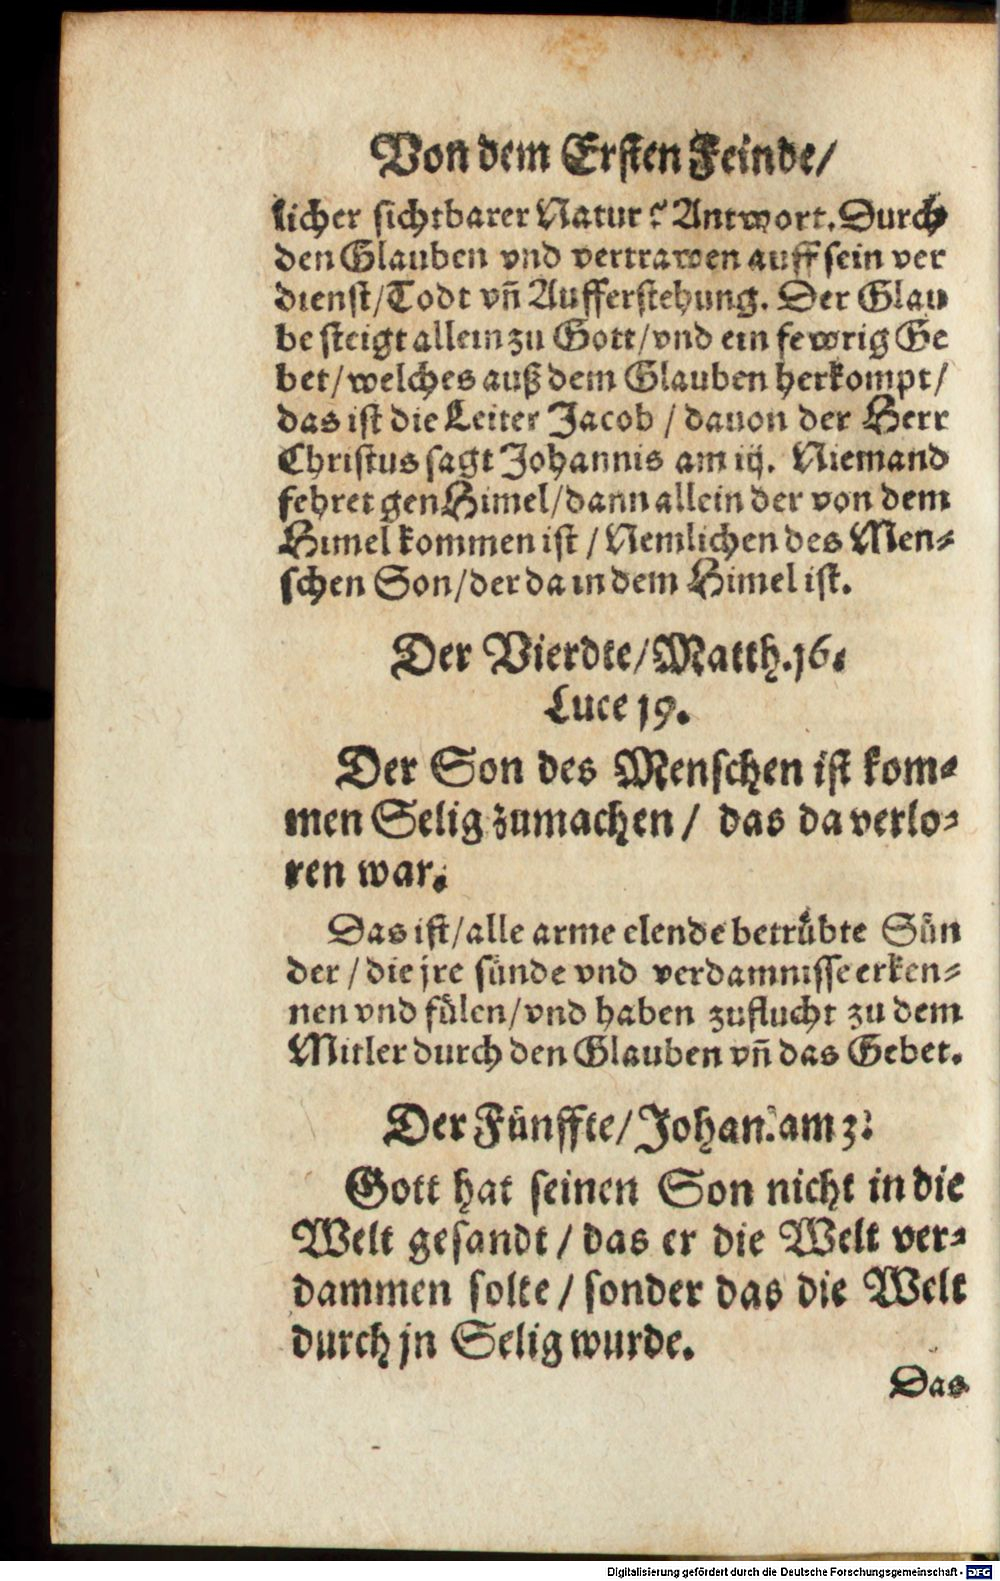 Von dem Ersten Feinde/
licher sichtbarer Natur? Antwort. Durch
den Glauben vnd vertrawen auff sein ver
dienst/Todt vñ Aufferstehung. Der Glau
be steigt allein zu Gott/vnd ein fewrig Ge
bet/welches auß dem Glauben herkompt/
das ist die Leiter Jacob / dauon der Herr
Christus sagt Johannis am iij. Niemand
fehret gen Himel/dann allein der von dem
Himel kommen ist / Nemlichen des Men-
schen Son/der da in dem Himel ist.
Der Vierdte/Matth.16.
Luce 19.
Der Son des Menschen ist kom-
men Selig zumachen / das da verlo-
ren war.
Das ist/alle arme elende betrübte Sün
der / die jre sünde vnd verdamnisse erken-
nen vnd fülen/vnd haben zuflucht zu dem
Mitler durch den Glauben vñ das Gebet.
Der Fünffte/Johan. am 3.
Gott hat seinen Son nicht in die
Welt gesandt / das er die Welt ver-
dammen solte / sonder das die Welt
durch jn Selig wurde.
Das
Digitalisierung gefördert durch die Deutsche Forschungsgemeinschaft - DFG